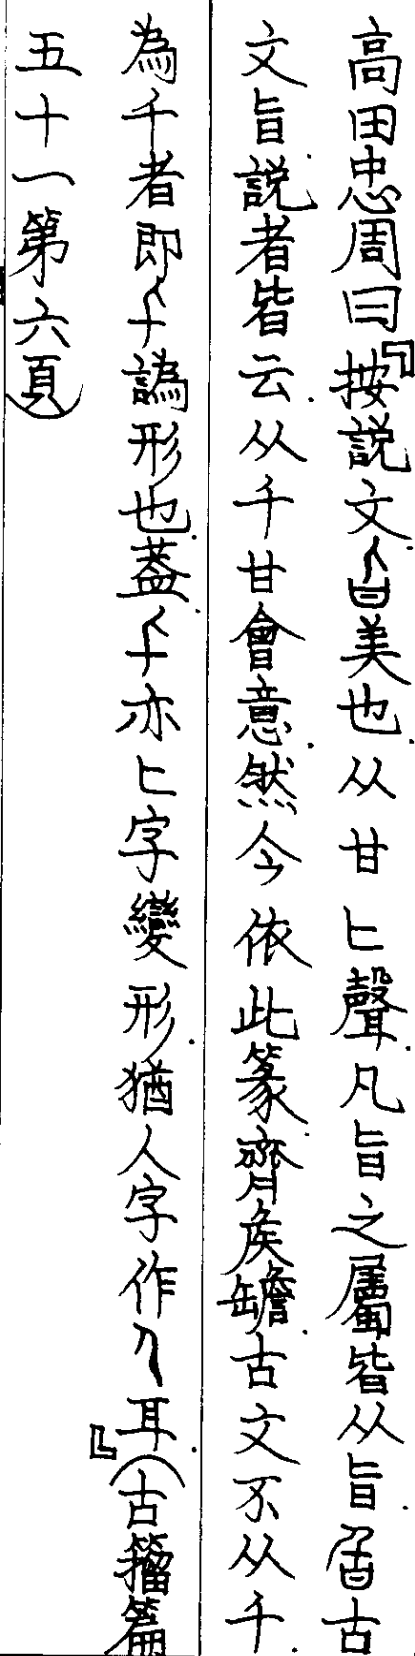 高田忠周曰『按說文㫖美也.从甘匕聲.凡旨之屬皆从旨.古
文旨說者皆云.从千甘會意.然今依此篆.齊侯罎.古文不从千.
為千者即千譌形也.葢.千亦匕字變形.猶人字作人耳.』(古籀篇
五十一第六頁)